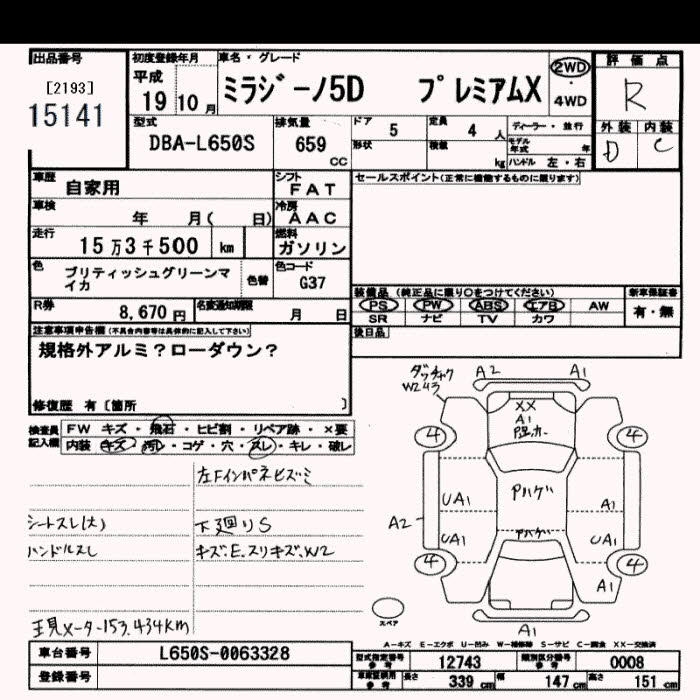 出品番号
[2193]
15141
初度登録年月
平成
19 10 月
車名・グレード
ミラジーノ5D プレミアムX
2WD
・
4WD
評価点
R
外装 内装
D C
型式
DBA-L650S
排気量
659
CC
ドア 5
定員 4 人
ディーラー・並行
形状
積載 kg
モデル年式 年
ハンドル 左・右
車歴 自家用
シフト FAT
セールスポイント(正常に機能するものに限ります)
車検 年 月( 日)
冷房 AAC
走行 15万3千500 km
燃料 ガソリン
色 ブリティッシュグリーンマイカ
色替
色コード G37
装備品 (純正品に限り○をつけてください)
新車保証書
PS PW ABS エアB AW
有・無
SR ナビ TV カワ
R券 8,670 円
名変通知期限 月 日
後日品
注意事項申告欄(不具合内容等は具体的に記入して下さい)
規格外アルミ?ローダウン?
修復歴 有〔箇所 〕
検査員記入欄
FW キズ・飛石・ヒビ割・リペア跡・×要
内装 キズ・汚レ・コゲ・穴・スレ・キレ・破レ
左Fインパネヒズミ
シートスレ(大)
下廻りS
ハンドルスレ
キズ、E、スリキズ、W2
現メーター153,434KM
A2 A1
W2
XX
A1
4 4
Pハゲ
UA1 A1
A2
UA1 UA1
Pハゲ
4 4
A1
スペア
A1
A―キズ E―エクボ U―凹み W―補修跡 S―サビ C―腐食 XX―交換済
車台番号 L650S-0063328
型式指定番号 参考 12743
類別区分番号 参考 0008
登録番号
長さ 339 cm 幅 147 cm 高さ 151 cm